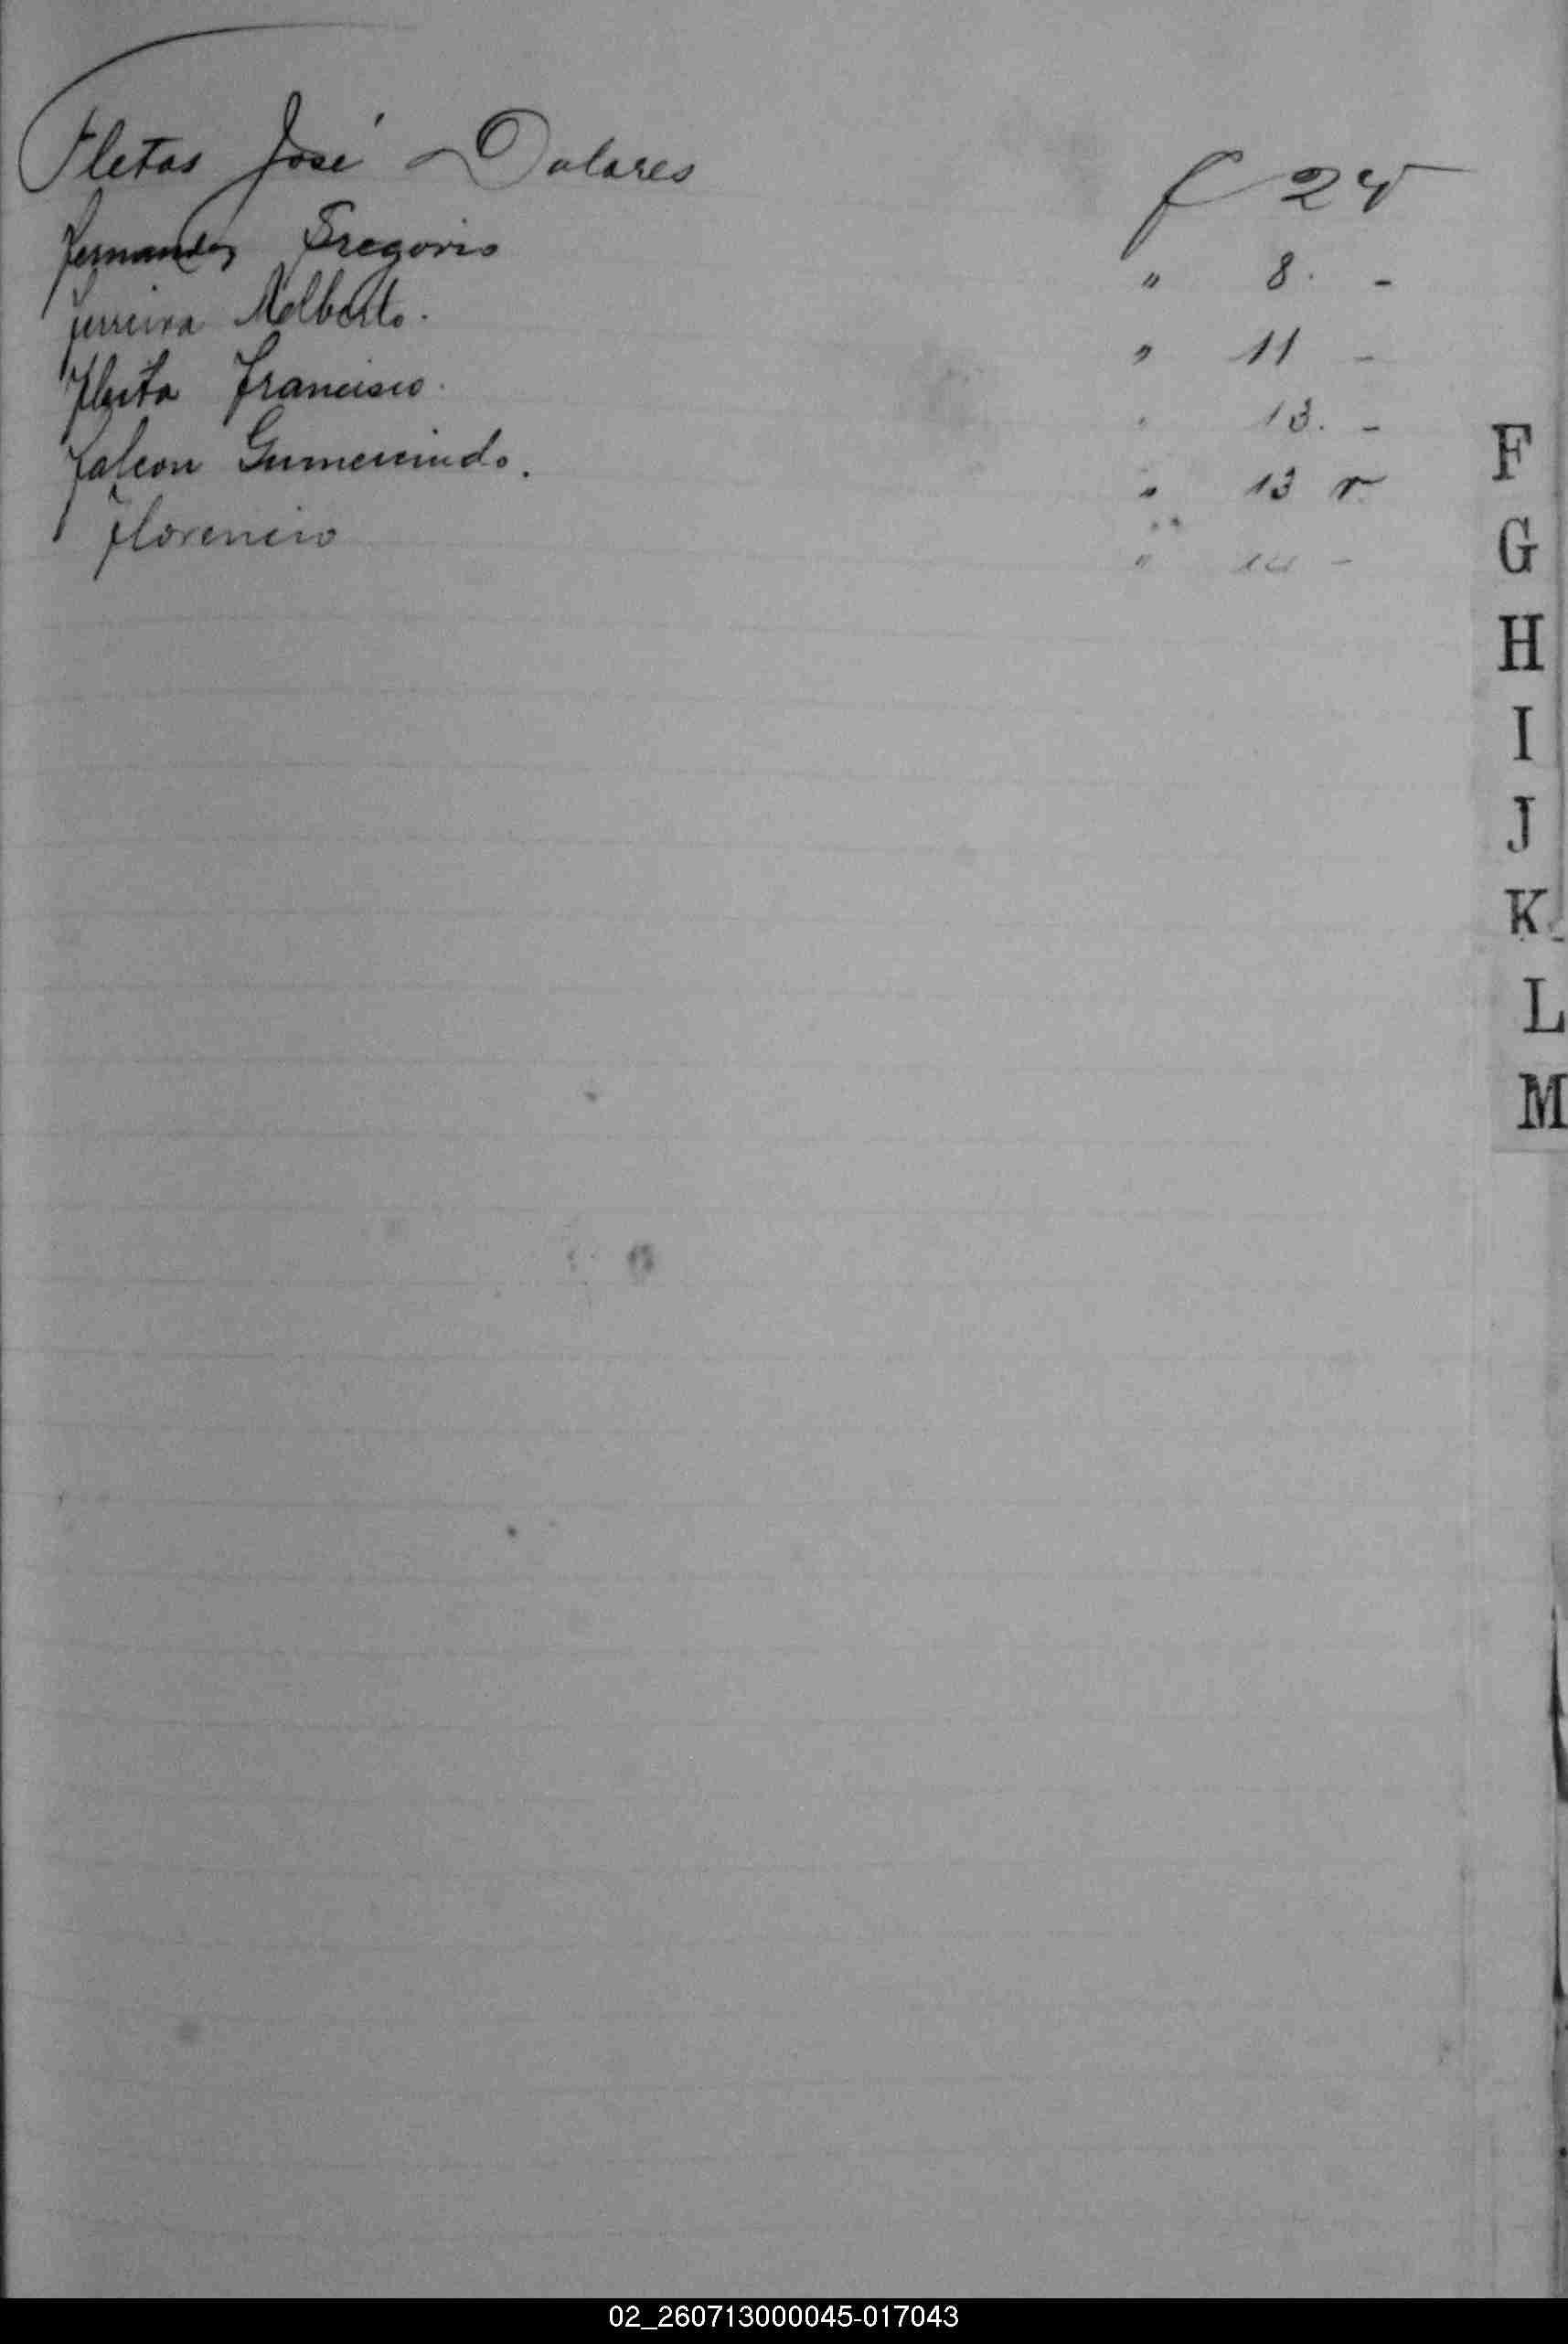 Fletas José Dolores f 2 v
Fernandez Gregorio " 8. -
Ferreira Adalberto. " 11 -
Fleita Francisco. " 13. -
Falcon Gumercindo. " 13 r
Florencio " 14 -
F
G
H
I
J
K
L
M
02_260713000045-017043